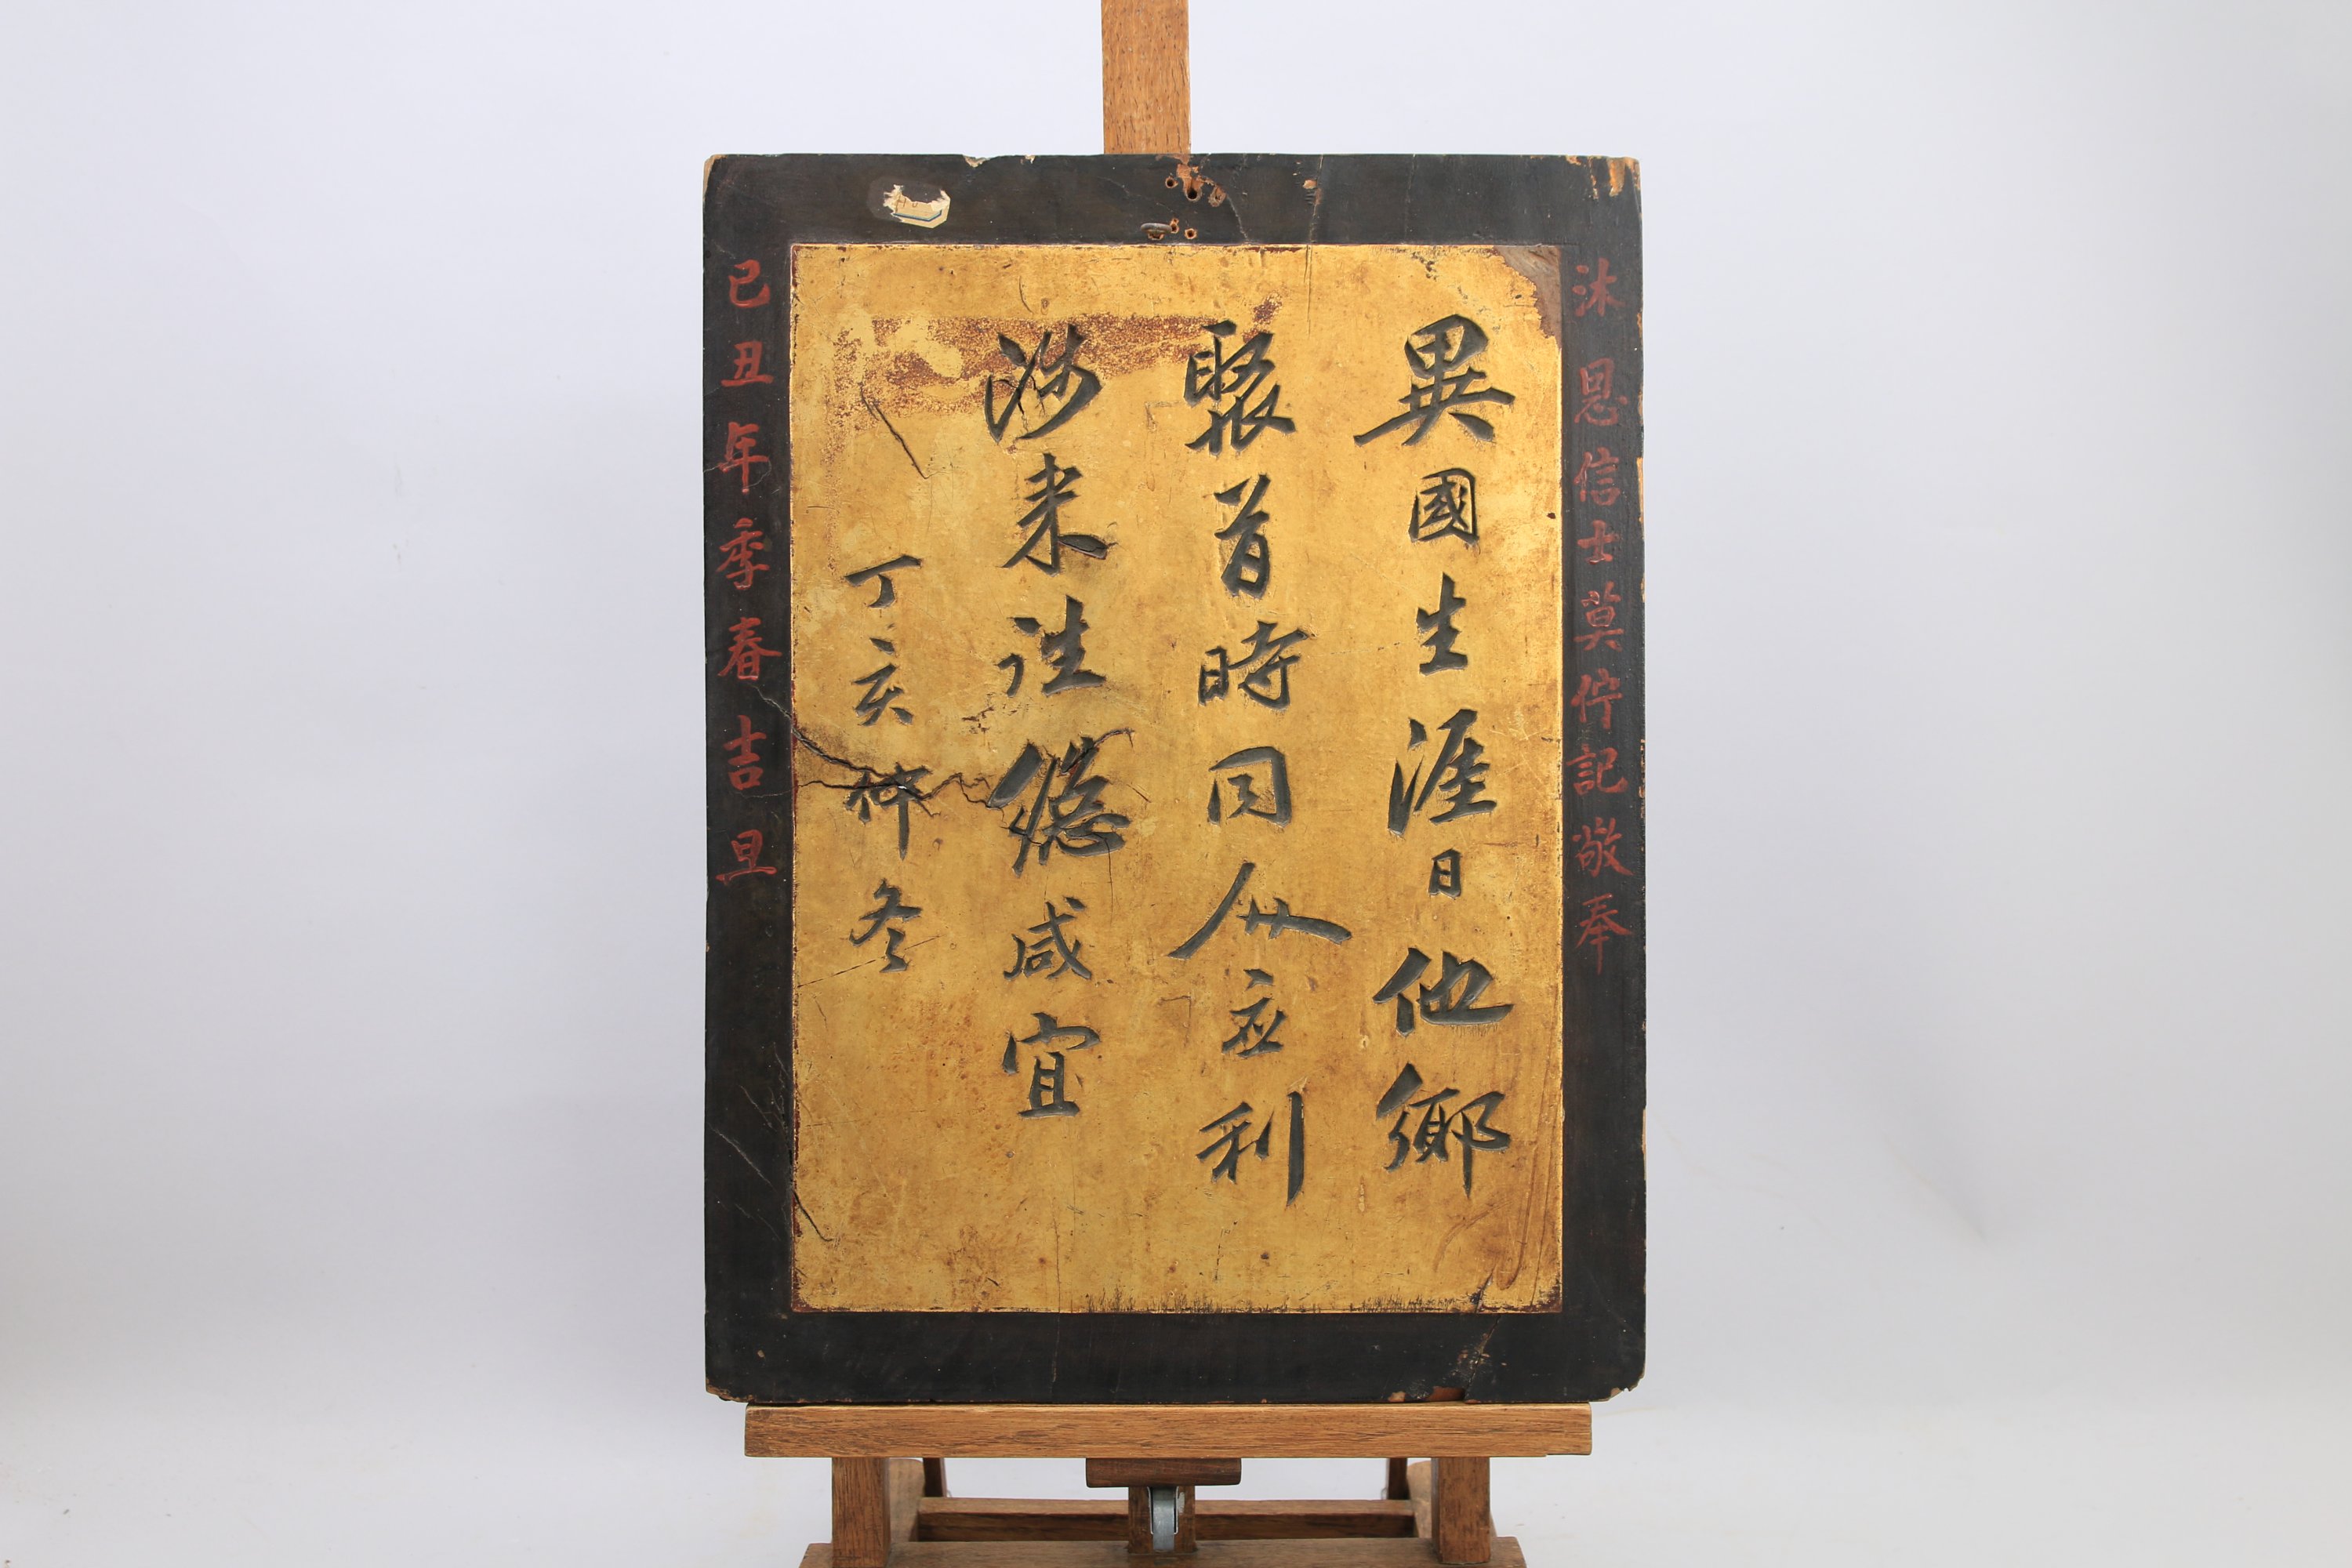 沐恩信士莫佇記敬奉
異國生涯日他鄉
聚首時同人应利
涉来往總咸宜
丁亥仲冬
己丑年季春吉旦